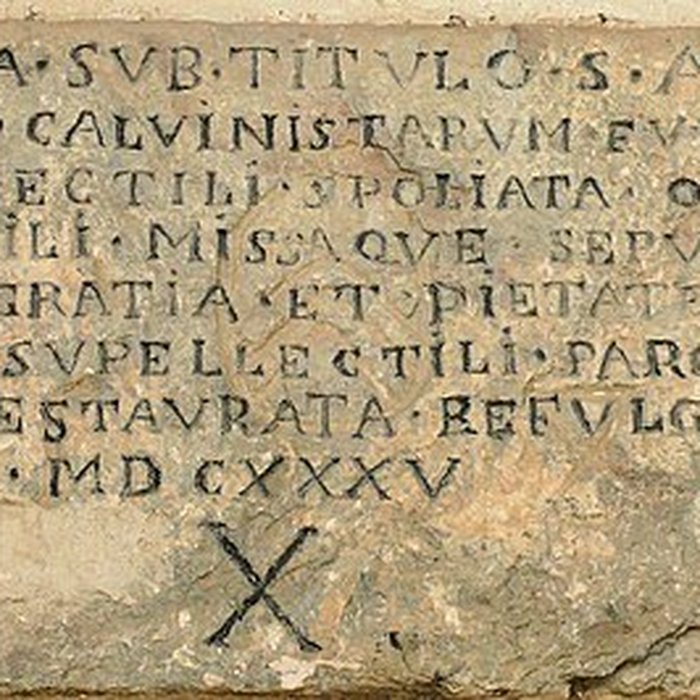 A·SVB·TITVLO·S·A
CALVINISTARVM FV
ECTILI·SPOLIATA·
ILI·MISSAQVE·SEPV
GRATIA·ET·PIETAT
SVPELLECTILI·PARO
ESTAVRATA·REFVLG
·MDCXXXV
X